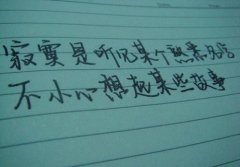 寂寞是听见某个熟悉名字
不小心想起某些故事